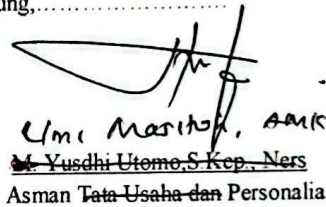 ung,......................
Umi Masitoh, AMK
M. Yusdhi Utomo,S.Kep., Ners
Asman Tata Usaha dan Personalia